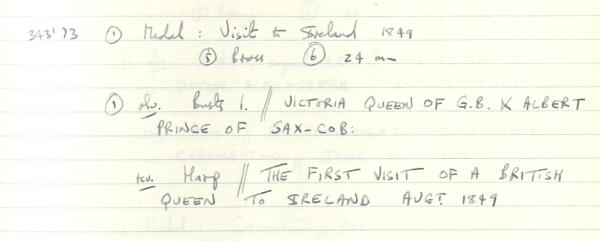 343'73 ① Medal : Visit to Ireland 1849
⑤ Brass ⑥ 24 mm
③ obv. Busts l. // VICTORIA QUEEN OF G.B. & ALBERT
PRINCE OF SAX-COB:
rev. Harp // THE FIRST VISIT OF A BRITISH
QUEEN TO IRELAND AUGT. 1849